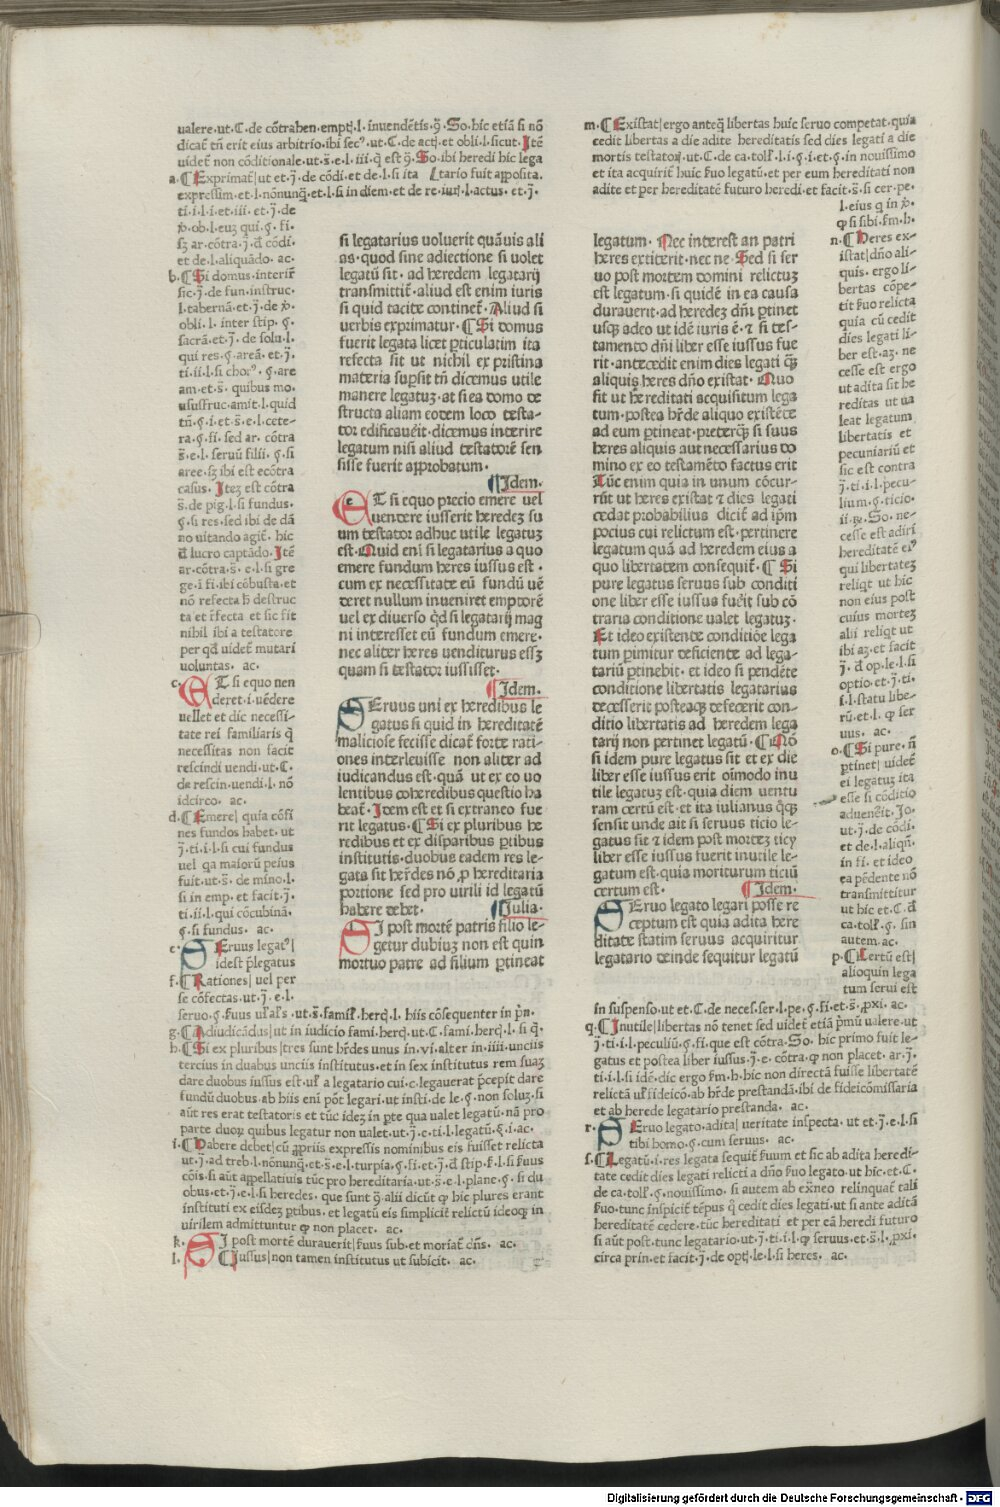 ualere·ut·C·de cõtrahen·empt̨·l·inuendẽtis·q̃·So·hic etiã si nõ
dicat̃ tñ erit eius arbitrio·ibi
uidet̃ non cõditionale·ut·s̃·e·l·iii·q̃ est q̃·So·ibi heredi hic lega
a·Exprimat̃|ut et·j̃·de cõdi·et de·l·si ita tario fuit apposita·
expressim·et·l·nõnunq̃·et·l·si in diem·et de re·iur̨·l·actus·et·j̃·
ti·i·l·i·et·iii·et·j̃·de
et de·l·aliquãdo·ac·
b·Si domus·interir̃
sic·j̃·de fun·instruc·
l·tabernã·et·j̃·de
obli·l·inter stip·ꝯ·
sacrã·et·j̃·de solu·l·
qui res·ꝯ·areã·et·j̃·
am·et·s̃·quibus mo·
ususfruc·amit·l·quid
tñ·ꝯ·i·et·s̃·e·l·cete·
ra·ꝯ·fi·sed ar·cõtra
s̃·e·l·seruũ filii·ꝯ·si
aree·sʒ ibi est ecõtra
casus·Iteʒ est cõtra
s̃·de pig·l·si fundus·
ꝯ·si res·sed ibi de dã
no uitando agit̃·hic
đ lucro captãdo·Itẽ
ar·cõtra·s̃·e·l·si gre
ge·i·fi·ibi cõbusta·et
nõ refecta ħ destruc
ta et r̃fecta et sic fit
nihil ibi a testatore
per qđ uidet̃ mutari
uoluntas·ac·
c·AT si equo nen
deret·i·uẽdere
uellet et dic necessi·
tate rei familiaris q̃
necessitas non facit
rescindi uendi·ut·C·
de rescin·uendi·l·nõ
idcirco·ac·
d·Emere|quia cõfi
nes fundos habet·ut
j̃·ti·i·l·si cui fundus
uel qa maiorũ peius
fuit·ut·s̃·de mino·l·
si in emp·et facit·j̃·
ti·ii·l·qui cõcubinã·
ꝯ·si fundus·ac·
e·Seruus legat⁹|
idest p̃legatus
f·Rationes|uel per
se cõfectas·ut·j̃·e·l·
g·Adiudicãdus|ut in iudicio fami·herq̨·ut·C·fami·herq̨·l·si q̃·
h·Si ex pluribus|tres sunt hr̃des unus in·vi·alter in·iiii·unciis
tercius in duabus unciis institutus·et in sex institutus rem suaʒ
dare duobus iussus est·
fundũ duobus·ab hiis eni põt legari·ut insti·de le·ꝯ·non soluʒ·si
aũt res erat testatoris et tũc ideʒ in p̃te qua ualet legatũ·nã pro
parte duorʒ quibus legatur non ualet·ut·j̃·e·ti·l·legatũ·ꝯ·i·ac·
i·Habere debet|cũ ꝓpriis expressis nominibus eis fuisset relicta
ut·j̃·ad treb·l·nõnunq̃·et·s̃·e·l·turpia·ꝯ·si·et·j̃·đ stip·
cõis·si aũt appellatiuis tũc pro hereditaria·ut·s̃·e·l·plane·ꝯ·si du
obus·et·j̃·e·l·si heredes·que sunt q̃ alii dicũt ꝙ hic plures erant
instituti ex eisdeʒ ꝑtibus·et legatũ eis simplicit̃ relictũ ideoꝙ in
uirilem admittuntur ꝙ non placet·ac·
k·SI post mortẽ durauerit|ẜuus sub·et moriat̃ dñs·ac·
l·Iussus|non tamen institutus ut subicit·ac·
si legatarius uoluerit quãuis ali
as·quod sine adiectione si uolet
legatũ sit·ad heredem legatarij
transmittit̃·aliud est enim iuris
si quid tacite continet̃·Aliud si
uerbis exprimatur·Si domus
fuerit legata licet ꝑticulatim ita
refecta sit ut nichil ex pristina
materia supsit tñ dicemus utile
manere legatuʒ·at si ea domo de
structa aliam eodem loco testa-
tor edificauẽit·dicemus interire
legatum nisi aliud testatorẽ sen
sisse fuerit approbatum·
Idem·
ET si equo precio emere uel
uendere iusserit heredeʒ su
um testator adhuc utile legatuʒ
est·Quid eni si legatarius a quo
emere fundum heres iussus est·
cum ex necessitate eũ fundũ uẽ
deret nullum inueniret emptorẽ
uel ex diuerso qđ si legatarij mag
ni interesset eũ fundum emere·
nec aliter heres uenditurus essʒ
quam si testator iussisset·
Idem·
SEruus uni ex heredibus le
gatus si quid in hereditatẽ
maliciose fecisse dicat̃ forte rati-
ones interleuisse non aliter ad
iudicandus est·quã ut ex eo uo
lentibus coheredibus questio ha
beat̃·Idem est et si extraneo fue
rit legatus·Si ex pluribus he
redibus et ex disparibus ꝑtibus
institutis·duobus eadem res le-
gata sit her̃des nõ ꝓ hereditaria
portione sed pro uirili id legatũ
habere debet·
Iulia·
SI post mortẽ patris filio le-
getur dubiuʒ non est quin
mortuo patre ad filium ꝑtineat
m·Existat|ergo anteq̃ libertas huic seruo competat·quia
cedit libertas a die adite hereditatis sed dies legati a die
mortis testatoris·ut·C·de ca·toll·l·i·ꝯ·i·et·ꝯ·in nouissimo
et ita acquirit̃ huic ẜuo legatũ·et per eum hereditati non
adite et per hereditatẽ futuro heredi·et facit·s̃·si cer·pe·
legatum·Nec interest an patri
heres extiterit·nec ne·Sed si ser
uo post mortem domini relictuʒ
est legatum·si quidẽ in ea causa
durauerit·ad heredeʒ dñi ꝑtinet
usqʒ adeo ut idẽ iuris ẽ·⁊ si tes-
tamento dñi liber esse iussus fue
rit·antecedit enim dies legati q̃ʒ
aliquis heres dño existat·Quo
fit ut hereditati acquisitum lega
tum·postea hr̃de aliquo existẽte
ad eum ꝑtineat·preterq̃ʒ si suus
heres aliquis aut necessarius do
mino ex eo testamẽto factus erit
Tũc enim quia in unum cõcur-
rũt ut heres existat ⁊ dies legati
cedat probabilius dicit̃ ad ip̃m
pocius cui relictum est·pertinere
legatum quã ad heredem eius a
quo libertatem consequit̃·Si
pure legatus seruus sub conditi
one liber esse iussus fuẽit sub cõ
traria conditione ualet legatuʒ·
Et ideo existente conditiõe lega
tum ꝑimitur deficiente ad lega-
tariũ ꝑtinebit·et ideo si pendẽte
conditione libertatis legatarius
decesserit posteaqʒ defecerit con-
ditio libertatis ad heredem lega
tarij non pertinet legatũ·Nõ
si idem pure legatus sit et ex die
liber esse iussus erit oĩmodo inu
tile legatuʒ est·quia diem uentu
ram certũ est·et ita iulianus q̃qʒ
sensit unde ait si seruus ticio le-
gatus sit ⁊ idem post morteʒ ticij
liber esse iussus fuerit inutile le-
gatum est·quia moriturum ticiũ
certum est·
Idem·
SEruo legato legari posse re
ceptum est quia adita here
ditate statim seruus acquiritur
legatario deinde sequitur legatũ
l·eius q in
ꝙ si sibi·ẜm·h·
n·Heres ex-
istat|dño ali-
quis·ergo li-
bertas cõpe-
tit ẜuo relicta
quia cũ cedit
dies legati li-
ber est·aʒ·ne
cesse est ergo
ut adita sit he
reditas ut ua
leat legatum
libertatis et
pecuniariũ et
sic est contra
j̃·ti·i·l·pecu-
lium·ꝯ·ticio·
cesse est adiri
hereditatẽ ei⁹
qui libertateʒ
reliqt ut hic
non eius post
cuius morteʒ
alii reliqt ut
ibi aʒ·et facit
j̃·đ op·le·l·si
optio·et·j̃·ti·
i·l·statu libe-
rũ·et·l·ꝙ ser
uus·ac·
o·Si pure·ñ
ꝑtinet|uidet̃
ei legatuʒ ita
esse si cõditio
aduenẽit·Jo·
ut·j̃·de cõdi·
et de·l·aliqñ·
in fi·et ideo
ea pẽdente nõ
transmittitur
ut hic et·C·đ
ca·toll·ꝯ·sin
autem·ac·
p·Certũ est|
alioquin lega
tum serui est
in suspenso·ut et·C·de neces·ser·l·pe·ꝯ·fi·et·s̃·ꝓxi·ac·
q·Inutile|libertas nõ tenet sed uidet̃ etiã p̃mũ ualere·ut
j̃·ti·i·l·peculiũ·ꝯ·fi·que est cõtra·So·hic primo fuit le-
gatus et postea liber iussus·j̃·e·cõtra·ꝙ non placet·ar·j̃·
ti·i·l·si idẽ·dic ergo ẜm·h·hic non directã fuisse libertatẽ
relictã uel fideicõ·ab hr̃de prestandã·ibi de fideicõmissaria
et ab herede legatario prestanda·ac·
r·SEruo legato·adita|ueritate inspecta·ut et·j̃·e·l·si
tibi homo·ꝯ·cum seruus·ac·
s·Legatũ·i·res legata sequit̃ ẜuum et sic ab adita heredi-
tate cedit dies legati relicti a dño ẜuo legato·ut hic·et·C·
de ca·toll·ꝯ·nouissimo·si autem ab ex̃neo relinquat̃ tali
ẜuo·tunc inspicit̃ tẽpus q̃ cedit dies legati·ut si ante aditã
hereditatẽ cedere·tũc hereditati et per eã heredi futuro
si aũt post·tunc legatario·ut·j̃·ti·i·l·ꝙ seruus·et·s̃·l·ꝓxi·
circa prin·et facit·j̃·de opt̨·le·l·si heres·ac·
Digitalisierung gefördert durch die Deutsche Forschungsgemeinschaft - DFG